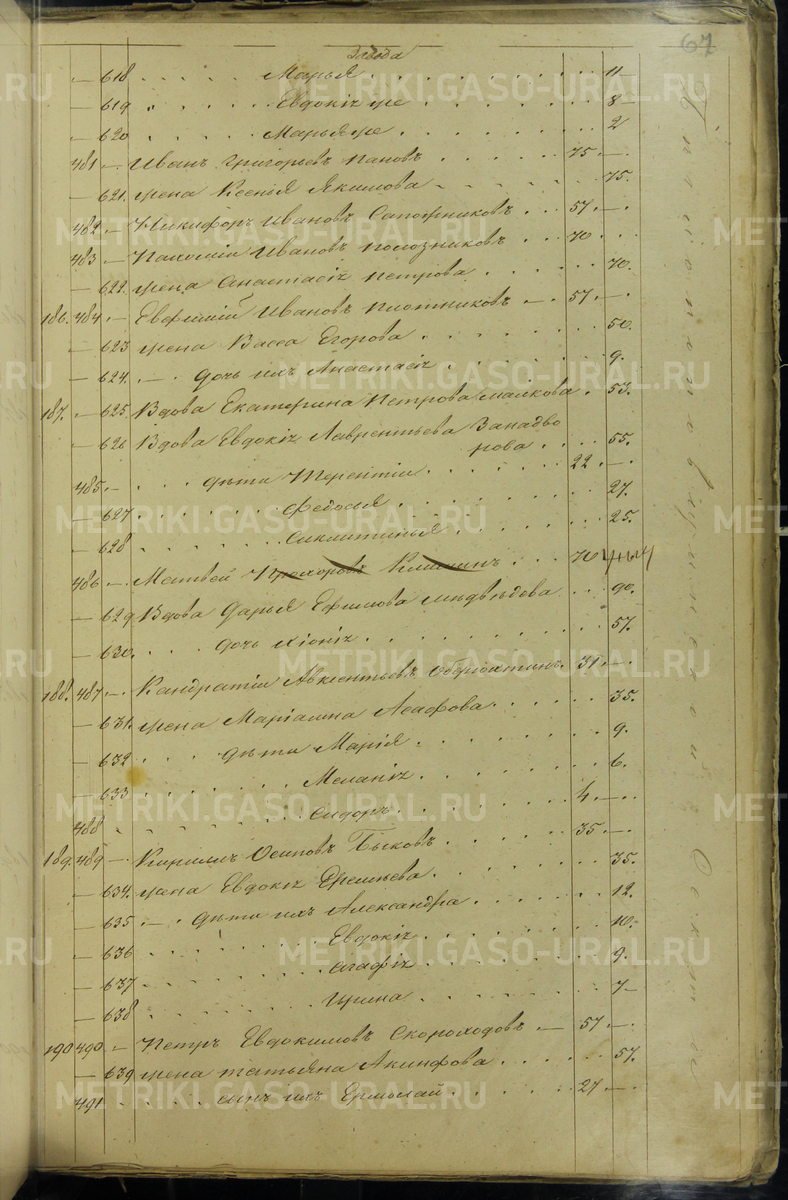 67
Завода
— 618 Марья 11 —
— 619 „ Евдокія же 8 —
— 620 Марья же 2
481 — Иванъ Григорьевъ Пановъ 75 —
— 621. жена Ксенья Якимова 75.
482 — Никифоръ Ивановъ Сапожниковъ 57 —
483 — Пахомій Ивановъ Полозниковъ 70
— 622. жена Анастасія Петрова 70.
186. 484 — Евфимій Ивановъ Плотниковъ — 57 —
— 623 жена Васса Егорова 50.
— 624. — дочь ихъ Анастасія 9.
187. — 625. Вдова Екатерина Петрова Малкова 53.
— 626 Вдова Евдокія Лаврентьева Западво
рова 55.
485 — дѣти Терентій 22 —
— 627 Федосья 27.
— 628 25.
486 — Матвей 70
— 629 Вдова Дарья Ефимова Медвѣдова 90.
— 630. дочь Хіонія 57.
188. 487 — Кандратій Авксентьевъ 31 —
— 631. жена Маріамна Асафова 35.
— 632 дѣти Марія 9.
— 633 Меланія 6.
488 Сидоръ 4 —
189. 489 — Кирилъ Осиповъ Быковъ 35 —
— 634. жена Евдокія Еремьева 35.
— 635 — дѣти ихъ Александра 12.
— 636 Евдокія 10.
— 637 Агафія 9.
— 638 Ирина 7 —
190 490 — Петръ Евдокимовъ Скороходовъ — 57 —
— 639 жена Татьяна Акинфова 57.
491 сынъ ихъ Ермолай 27 —
METRIKI.GASO-URAL.RU